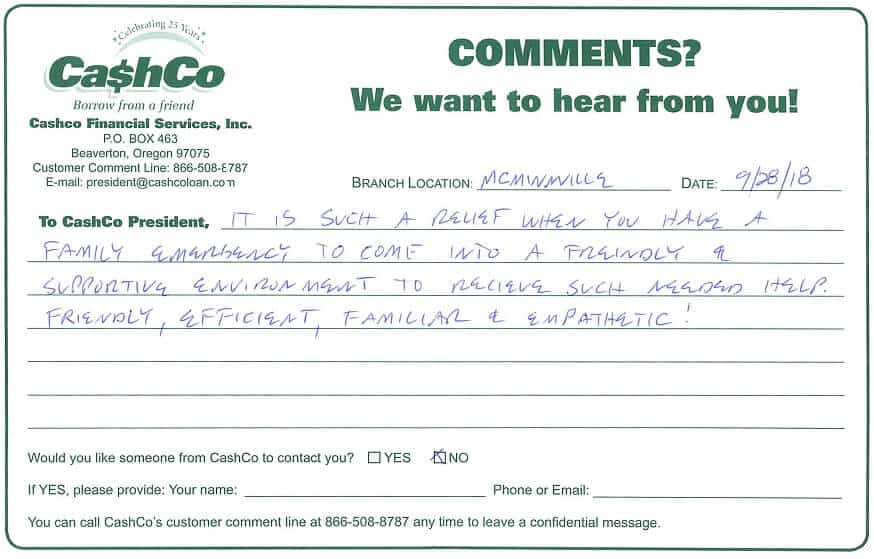 Celebrating 25 Years
Ca$hCo
Borrow from a friend
Cashco Financial Services, Inc.
P.O. BOX 463
Beaverton, Oregon 97075
Customer Comment Line: 866-508-8787
E-mail: president@cashcoloan.com
COMMENTS?
We want to hear from you!
BRANCH LOCATION: MCMINNVILLE DATE: 9/28/18
To CashCo President, IT IS SUCH A RELIEF WHEN YOU HAVE A
FAMILY EMERGENCY TO COME INTO A FREINDLY &
SUPPORTIVE ENVIRONMENT TO RECIEVE SUCH NEEDED HELP.
FRIENDLY, EFFICIENT, FAMILIAR & EMPATHETIC!
Would you like someone from CashCo to contact you? YES NO
If YES, please provide: Your name: Phone or Email:
You can call CashCo's customer comment line at 866-508-8787 any time to leave a confidential message.